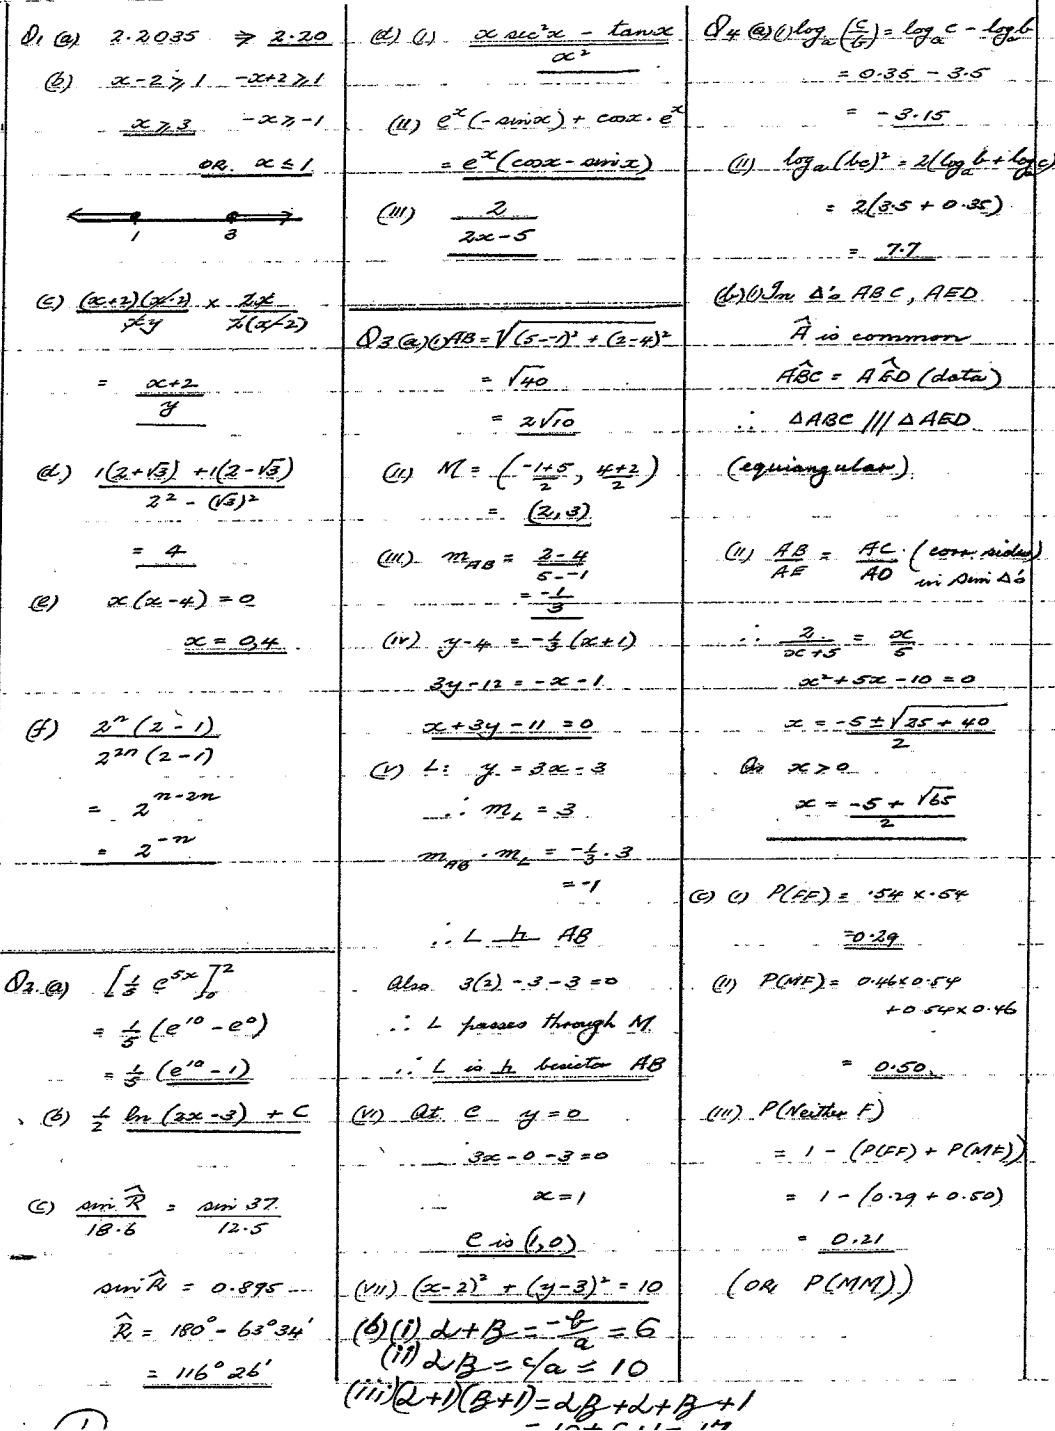 Q1 (a) 2.2035 ⇒ 2.20
(b) x-2 ≥ 1 -x+2 ≥ 1
x ≥ 3 -x ≥ -1
OR x ≤ 1
1 3
(c) (x+2)(x-2)/xy × 2x/2(x-2)
= x+2/y
(d) 1(2+√3) + 1(2-√3) / 2² - (√3)²
= 4
(e) x(x-4) = 0
x = 0,4
(f) 2ⁿ(2-1) / 2²ⁿ(2-1)
= 2^(n-2n)
= 2^(-n)
Q2 (a) [1/5 e^(5x)]₀²
= 1/5 (e¹⁰ - e⁰)
= 1/5 (e¹⁰ - 1)
(b) 1/2 ln (2x-3) + C
(c) sin R̂/18.6 = sin 37/12.5
sin R̂ = 0.895
R̂ = 180° - 63°34'
= 116° 26'
1
(d) (i) x sec²x - tan x / x²
(ii) eˣ(-sin x) + cos x . eˣ
= eˣ(cos x - sin x)
(iii) 2/2x-5
Q3 (a)(i) AB = √(5--1)² + (2-4)²
= √40
= 2√10
(ii) M = (-1+5/2, 4+2/2)
= (2,3)
(iii) m_AB = 2-4/5--1
= -1/3
(iv) y-4 = -1/3 (x+1)
3y-12 = -x-1
x+3y-11 = 0
(v) L: y = 3x-3
∴ m_L = 3
m_AB . m_L = -1/3 . 3
= -1
∴ L ⊥ AB
Also 3(2) - 3 - 3 = 0
∴ L passes through M
∴ L is ⊥ bisector AB
(vi) At C y = 0
3x - 0 - 3 = 0
x = 1
C is (1,0)
(vii) (x-2)² + (y-3)² = 10
(b)(i) α+β = -b/a = 6
(ii) αβ = c/a = 10
(iii) (α+1)(β+1) = αβ+α+β+1
= 10+6+1 = 17
Q4 (a)(i) logₐ(c/b) = logₐc - logₐb
= 0.35 - 3.5
= -3.15
(ii) logₐ(bc)² = 2(logₐb + logₐc)
= 2(3.5 + 0.35)
= 7.7
(b)(i) In Δ's ABC, AED
Â is common
AB̂C = AÊD (data)
∴ ΔABC /// ΔAED
(equiangular)
(ii) AB/AE = AC/AD (corr. sides
in sim Δ's)
∴ 2/x+5 = x/5
x²+5x-10 = 0
x = -5±√25+40 / 2
As x>0
x = -5+√65 / 2
(c) (i) P(FF) = .54 x .54
=0.29
(ii) P(MF) = 0.46x0.54
+0.54x0.46
= 0.50
(iii) P(Neither F)
= 1 - (P(FF) + P(MF))
= 1 - (0.29 + 0.50)
= 0.21
(OR P(MM))